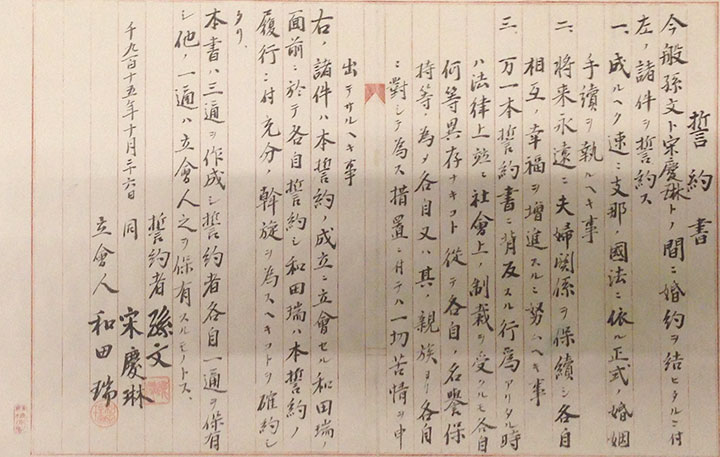 誓約書
今般孫文ト宋慶琳トノ間ニ婚約ヲ結ヒタルニ付
左ノ諸件ヲ誓約ス
一、成ルヘク速ニ支那ノ國法ニ依ル正式ノ婚姻
手續ヲ執ルヘキ事
二、将来永遠ニ夫婦関係ヲ保續シ各自
相互ノ幸福ヲ増進スルニ努ムヘキ事
三、万一本誓約書ニ背反スル行爲アリタル時
ハ法律上竝ニ社會上ノ制裁ヲ受クルモ各自
何等異存ナキコト従テ各自ノ名譽保
持等ノ為メ各自又ハ其ノ親族ヨリ各自
ニ對シテ為ス措置ニ付テハ一切苦情ヲ申
出テサルヘキ事
右ノ諸件ハ本誓約ノ成立ニ立會セル和田瑞ノ
面前ニ於テ各自誓約シ和田瑞ハ本誓約ノ
履行ニ付充分ノ幹旋ヲ為スヘキコトヲ確約シ
タリ、
本書ハ三通ヲ作成シ誓約者各自一通ヲ保有
シ他ノ一通ハ立會人之ヲ保有スルモノトス、
誓約者 孫文
千九百十五年十月二十六日 同 宋慶琳
立會人 和田瑞